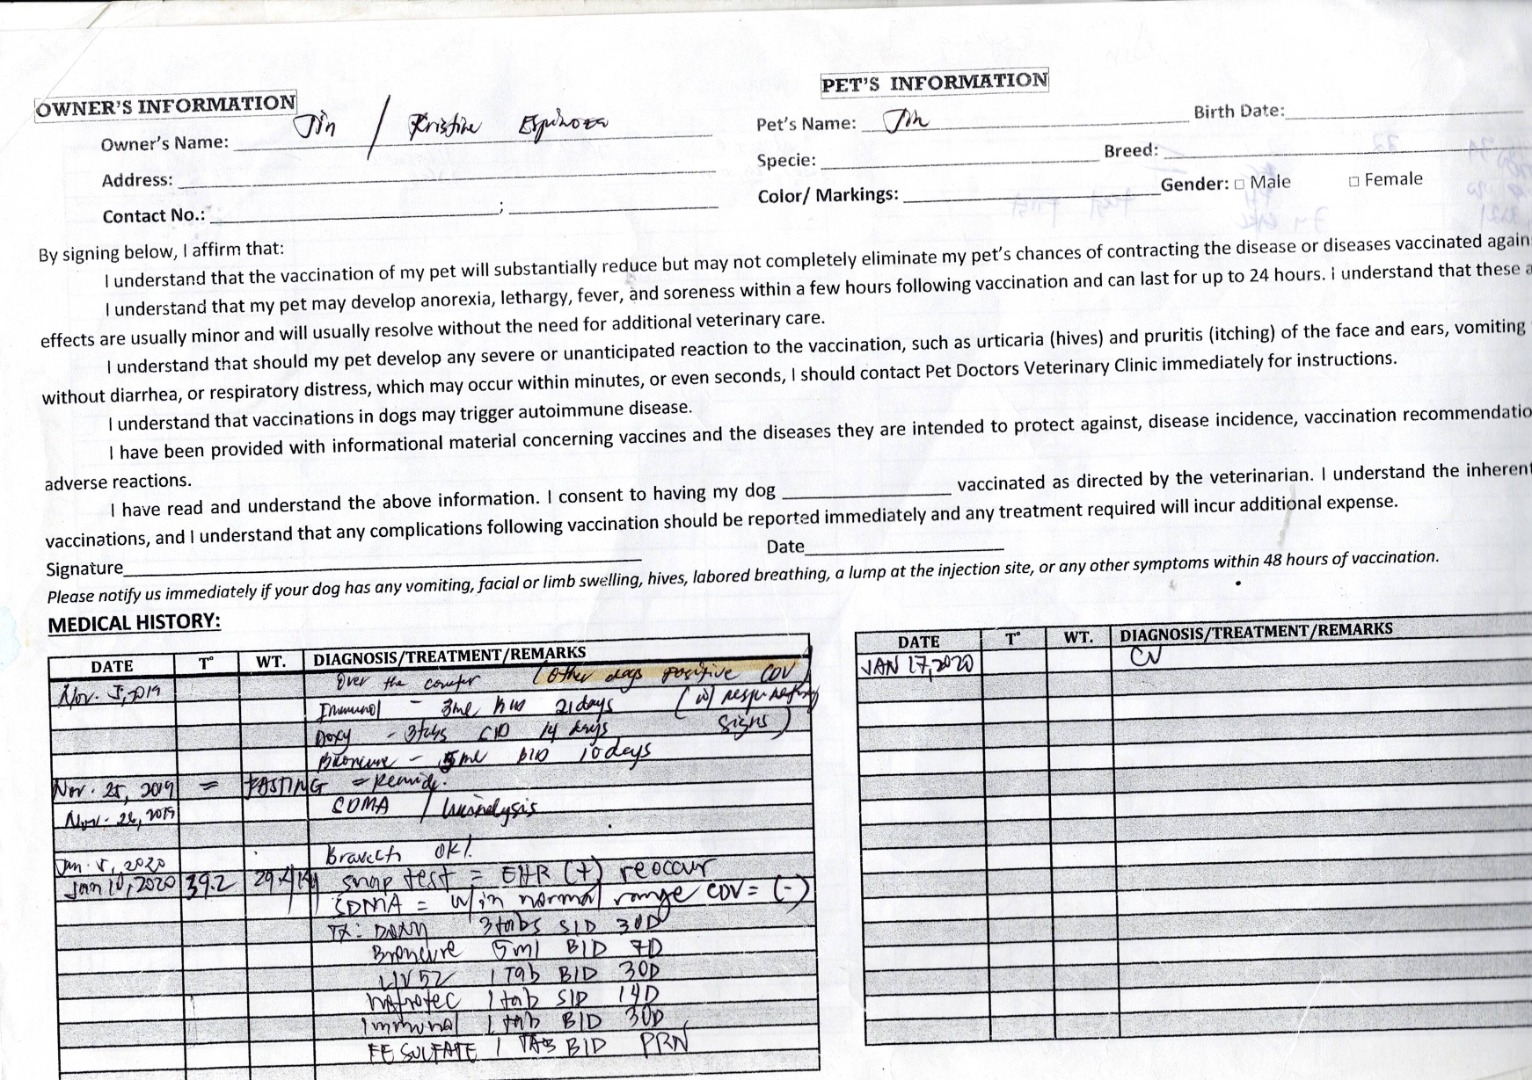 OWNER'S INFORMATION
PET'S INFORMATION
Owner's Name: Jin / Kristine Espinoza
Pet's Name: Jin
Birth Date:
Address:
Specie:
Breed:
Contact No.: ;
Color/ Markings:
Gender: □ Male □ Female
By signing below, I affirm that:
I understand that the vaccination of my pet will substantially reduce but may not completely eliminate my pet's chances of contracting the disease or diseases vaccinated again
I understand that my pet may develop anorexia, lethargy, fever, and soreness within a few hours following vaccination and can last for up to 24 hours. i understand that these a
effects are usually minor and will usually resolve without the need for additional veterinary care.
I understand that should my pet develop any severe or unanticipated reaction to the vaccination, such as urticaria (hives) and pruritis (itching) of the face and ears, vomiting
without diarrhea, or respiratory distress, which may occur within minutes, or even seconds, I should contact Pet Doctors Veterinary Clinic immediately for instructions.
I understand that vaccinations in dogs may trigger autoimmune disease.
I have been provided with informational material concerning vaccines and the diseases they are intended to protect against, disease incidence, vaccination recommendatio
adverse reactions.
I have read and understand the above information. I consent to having my dog vaccinated as directed by the veterinarian. I understand the inherent
vaccinations, and I understand that any complications following vaccination should be reported immediately and any treatment required will incur additional expense.
Signature Date
Please notify us immediately if your dog has any vomiting, facial or limb swelling, hives, labored breathing, a lump at the injection site, or any other symptoms within 48 hours of vaccination.
MEDICAL HISTORY:
DATE T° WT. DIAGNOSIS/TREATMENT/REMARKS
Nov. 5, 2019 Over the counter (Other dogs positive CDV
Immunol - 3ml BID 21 days (w/ respiratory
Doxy - 3tabs SID 14 days signs)
Broncure - 5ml BID 10 days
Nov. 25, 2019 = FASTING = Remide.
Nov. 26, 2019 SDMA / Urinalysis
Jan. 5, 2020 Bravecto OK!
Jan 10, 2020 39.2 29.4kg snap test = EHR (+) reoccur
SDMA = w/in normal range CDV = (-)
TX: DOXY 3tabs SID 30D
Broncure 5ml BID 7D
LIV52 1 Tab BID 30D
Nefrotec 1 tab SID 14D
Immunol 1 tab BID 30D
FE SULFATE 1 TAB BID PRN
DATE T° WT. DIAGNOSIS/TREATMENT/REMARKS
JAN 17, 2020 CV